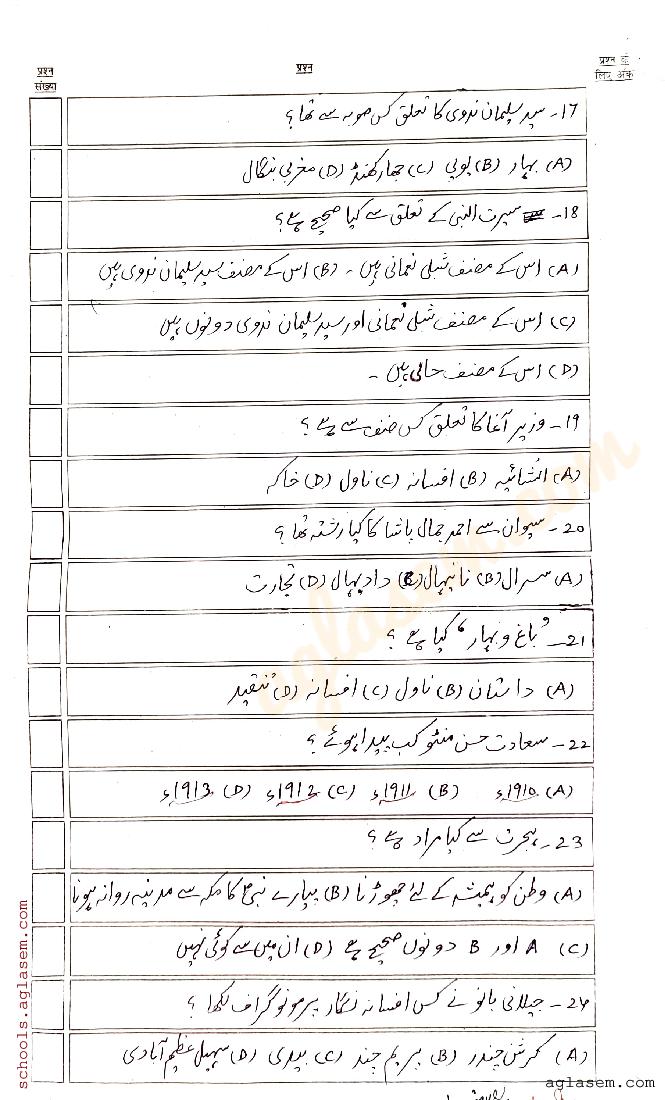 प्रश्न संख्या
प्रश्न
प्रश्न के लिए अंक
17- سید سلیمان ندوی کا تعلق کس صوبہ سے تھا؟
(A) بہار (B) یوپی (C) جھارکھنڈ (D) مغربی بنگال
18- سیرت النبی کے تعلق سے کیا صحیح ہے؟
(A) اس کے مصنف شبلی نعمانی ہیں - (B) اس کے مصنف سید سلیمان ندوی ہیں
(C) اس کے مصنف شبلی نعمانی اور سید سلیمان ندوی دونوں ہیں
(D) اس کے مصنف حالی ہیں -
19- وزیر آغا کا تعلق کس صنف سے ہے؟
(A) انشائیہ (B) افسانہ (C) ناول (D) خاکہ
20- سیوان سے احمد جمال پاشا کا کیا رشتہ تھا؟
(A) سسرال (B) نانیہال (C) دادیہال (D) تجارت
21- 'باغ و بہار' کیا ہے؟
(A) داستان (B) ناول (C) افسانہ (D) تنقید
22- سعادت حسن منٹو کب پیدا ہوئے؟
(A) 1910ء (B) 1911ء (C) 1912ء (D) 1913ء
23- ہجرت سے کیا مراد ہے؟
(A) وطن کو ہمیشہ کے لئے چھوڑنا (B) پیارے نبیؐ کا مکہ سے مدینہ روانہ ہونا
(C) A اور B دونوں صحیح ہے (D) ان میں سے کوئی نہیں
24- جیلانی بانو نے کس افسانہ نگار پر مونوگراف لکھا؟
(A) کرشن چندر (B) پریم چند (C) بیدی (D) سہیل عظیم آبادی
schools.aglasem.com
aglasem.com
aglasem.com